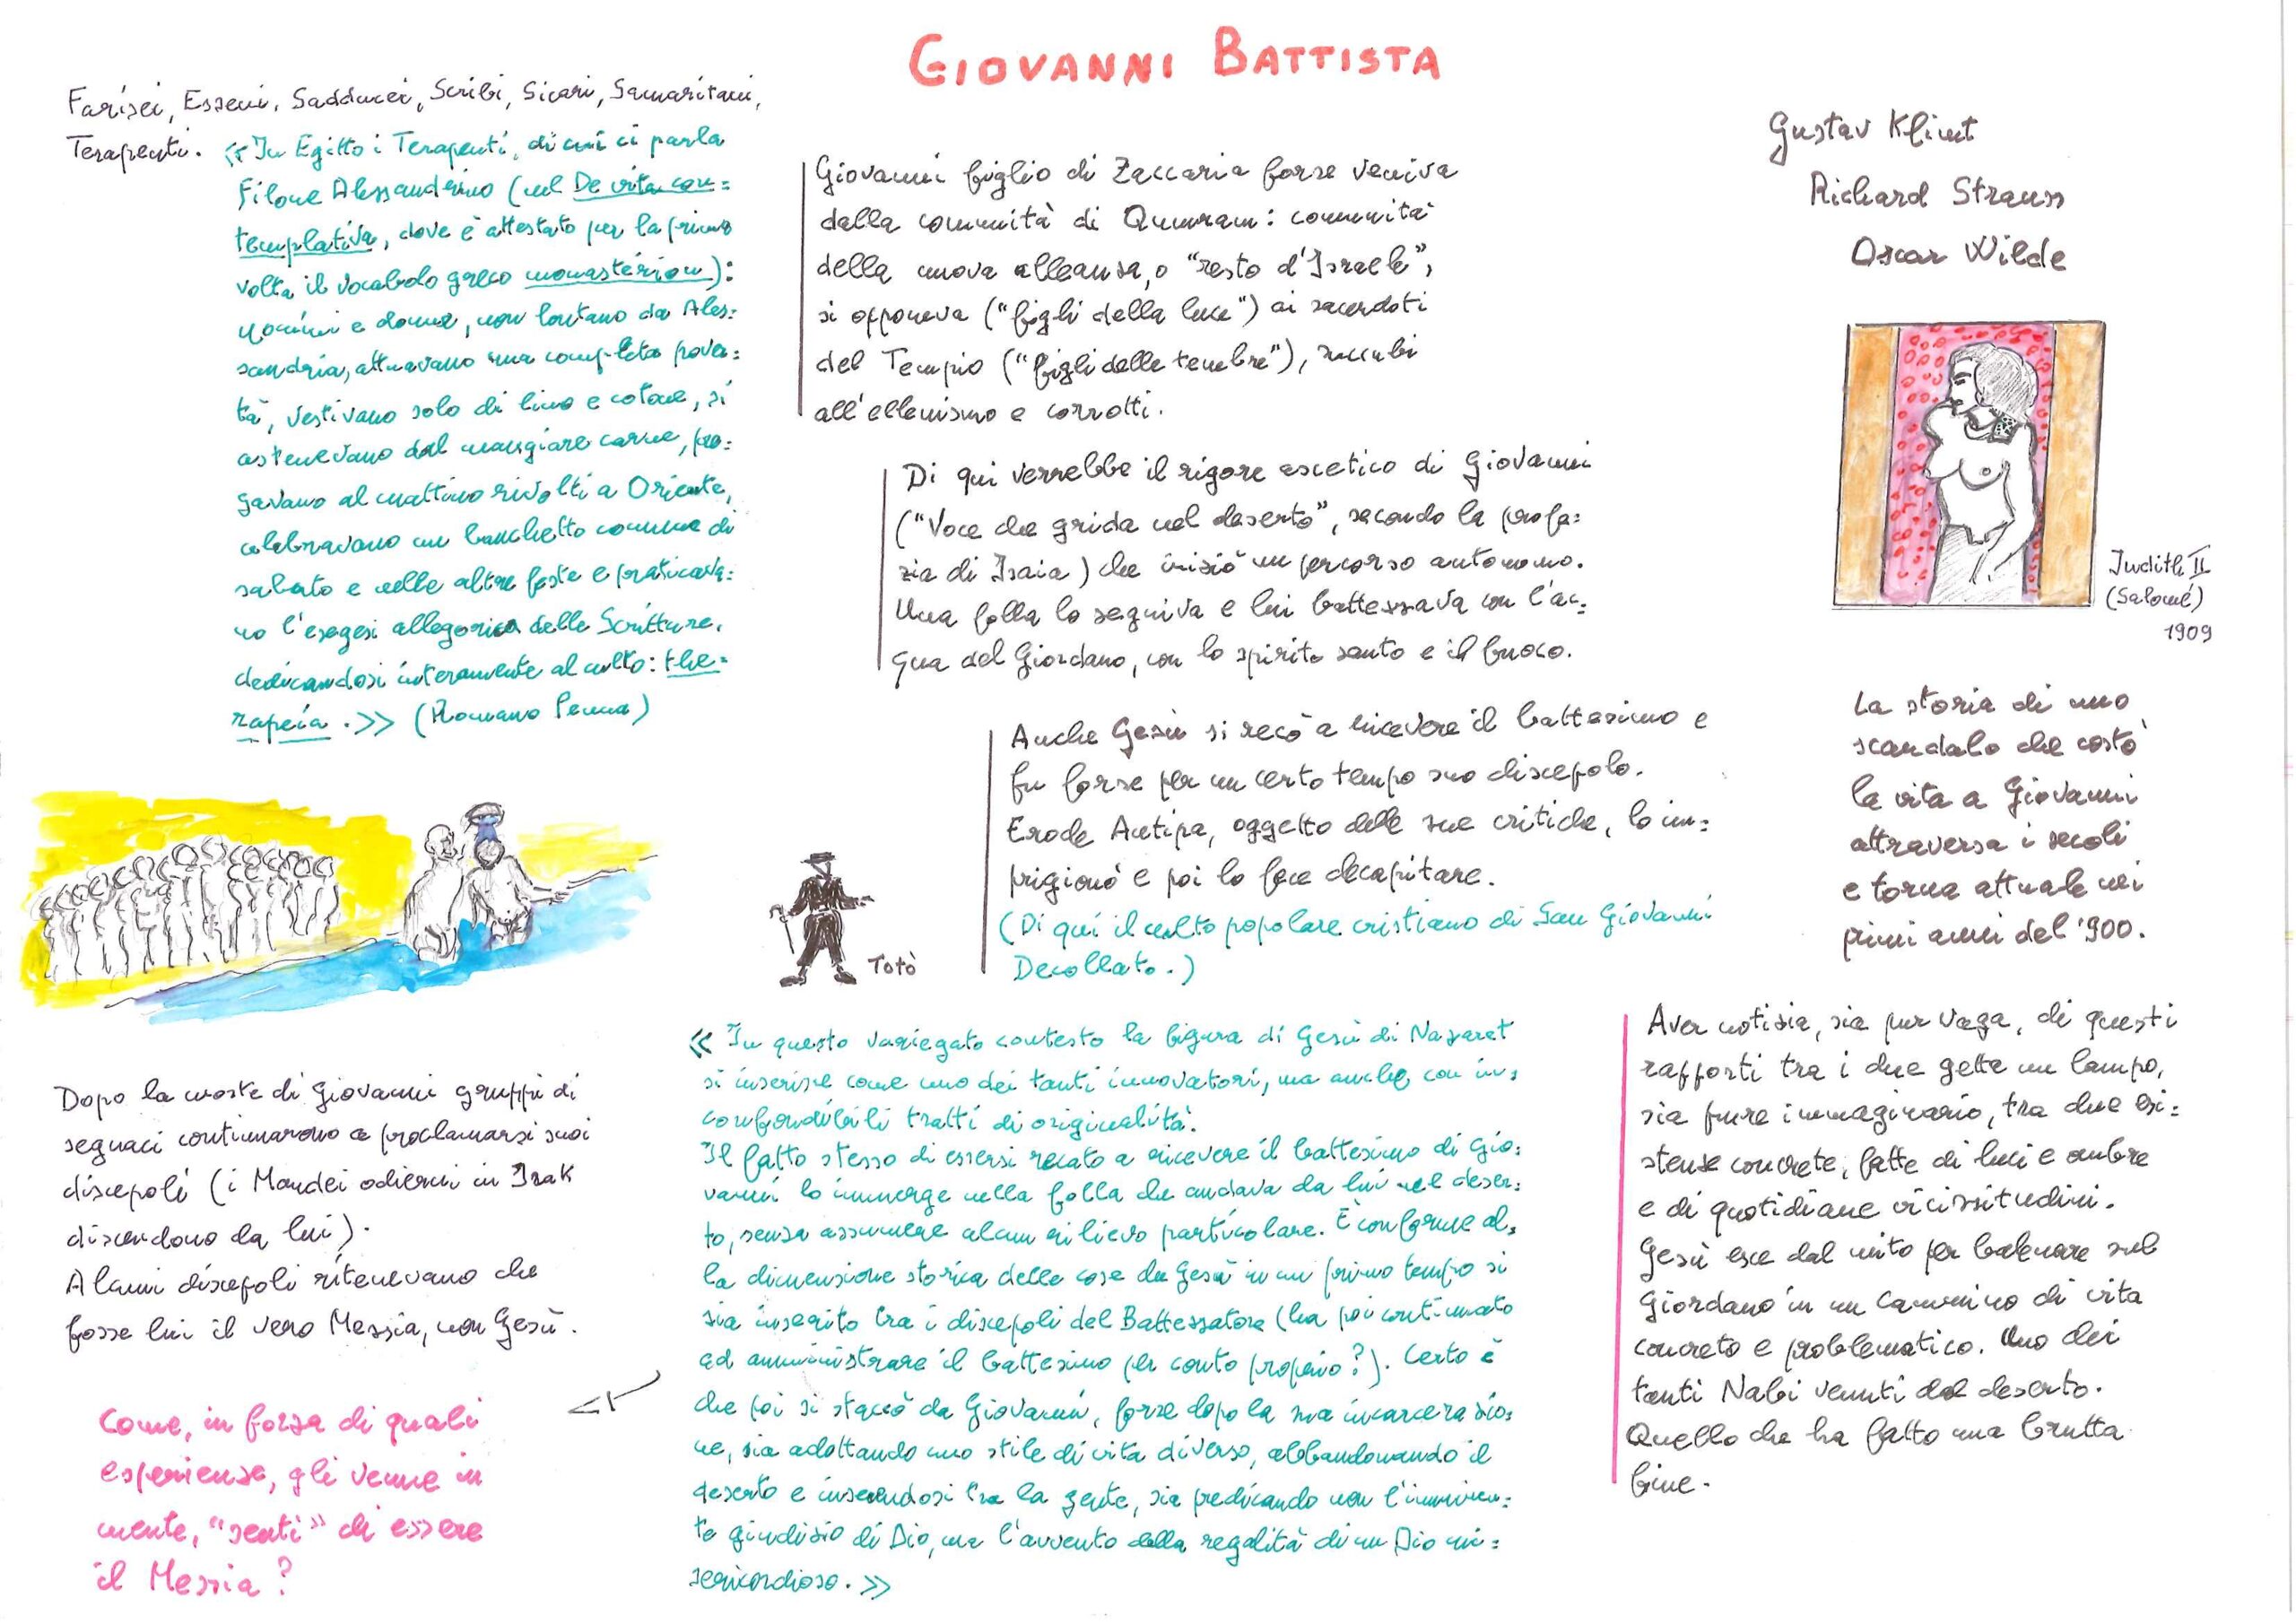 GIOVANNI BATTISTA
Farisei, Esseni, Sadducei, Scribi, Sicari, Samaritani,
Terapeuti. «In Egitto i Terapeuti, di cui ci parla
Filone Alessandrino (nel De vita con=
templativa, dove è attestato per la prima
volta il vocabolo greco monastérion):
uomini e donne, non lontano da Ales=
sandria, attuavano una completa pover=
tà, vestivano solo di lino e cotone, si
astenevano dal mangiare carne, pre=
gavano al mattino rivolti a Oriente,
celebravano un banchetto comune di
sabato e nelle altre feste e praticava=
no l'esegesi allegorica delle Scritture,
dedicandosi interamente al culto: the=
rapeía.» (Romano Penna)
Giovanni figlio di Zaccaria forse veniva
dalla comunità di Qumran: comunità
della nuova alleanza, o "resto d'Israele",
si opponeva ("figli della luce") ai sacerdoti
del Tempio ("figli delle tenebre"), succubi
all'ellenismo e corrotti.
Di qui verrebbe il rigore ascetico di Giovanni
("Voce che grida nel deserto", secondo la profe=
zia di Isaia) che iniziò un percorso autonomo.
Una folla lo seguiva e lui battezzava con l'ac=
qua del Giordano, con lo spirito santo e il fuoco.
Anche Gesù si recò a ricevere il battesimo e
fu forse per un certo tempo suo discepolo.
Erode Antipa, oggetto delle sue critiche, lo im=
prigionò e poi lo fece decapitare.
(Di qui il culto popolare cristiano di San Giovanni
Decollato.)
Totò
Gustav Klimt
Richard Strauss
Oscar Wilde
Judith II
(Salomé)
1909
La storia di uno
scandalo che costò
la vita a Giovanni
attraversa i secoli
e torna attuale nei
primi anni del '900.
Dopo la morte di Giovanni gruppi di
seguaci continuarono a proclamarsi suoi
discepoli (i Mandei odierni in Irak
discendono da lui).
Alcuni discepoli ritenevano che
fosse lui il vero Messia, non Gesù.
Come, in forza di quali
esperienze, gli venne in
mente, "sentì" di essere
il Messia?
«In questo variegato contesto la figura di Gesù di Nazaret
si inserisce come uno dei tanti innovatori, ma anche con in=
confondibili tratti di originalità.
Il fatto stesso di essersi recato a ricevere il battesimo di Gio=
vanni lo immerge nella folla che andava da lui nel deser=
to, senza assumere alcun rilievo particolare. È conforme al=
la dimensione storica delle cose che Gesù in un primo tempo si
sia inserito tra i discepoli del Battezzatore (ha poi continuato
ad amministrare il battesimo per conto proprio?). Certo è
che poi si staccò da Giovanni, forse dopo la sua incarcerazio=
ne, sia adottando uno stile di vita diverso, abbandonando il
deserto e inserendosi tra la gente, sia predicando non l'imminen=
te giudizio di Dio, ma l'avvento della regalità di un Dio mi=
sericordioso.»
Aver notizia, sia pur vaga, di questi
rapporti tra i due getta un lampo,
sia pure immaginario, tra due esi=
stenze concrete, fatte di luci e ombre
e di quotidiane vicissitudini.
Gesù esce dal mito per balenare sul
Giordano in un cammino di vita
concreto e problematico. Uno dei
tanti Nabi venuti dal deserto.
Quello che ha fatto una brutta
fine.